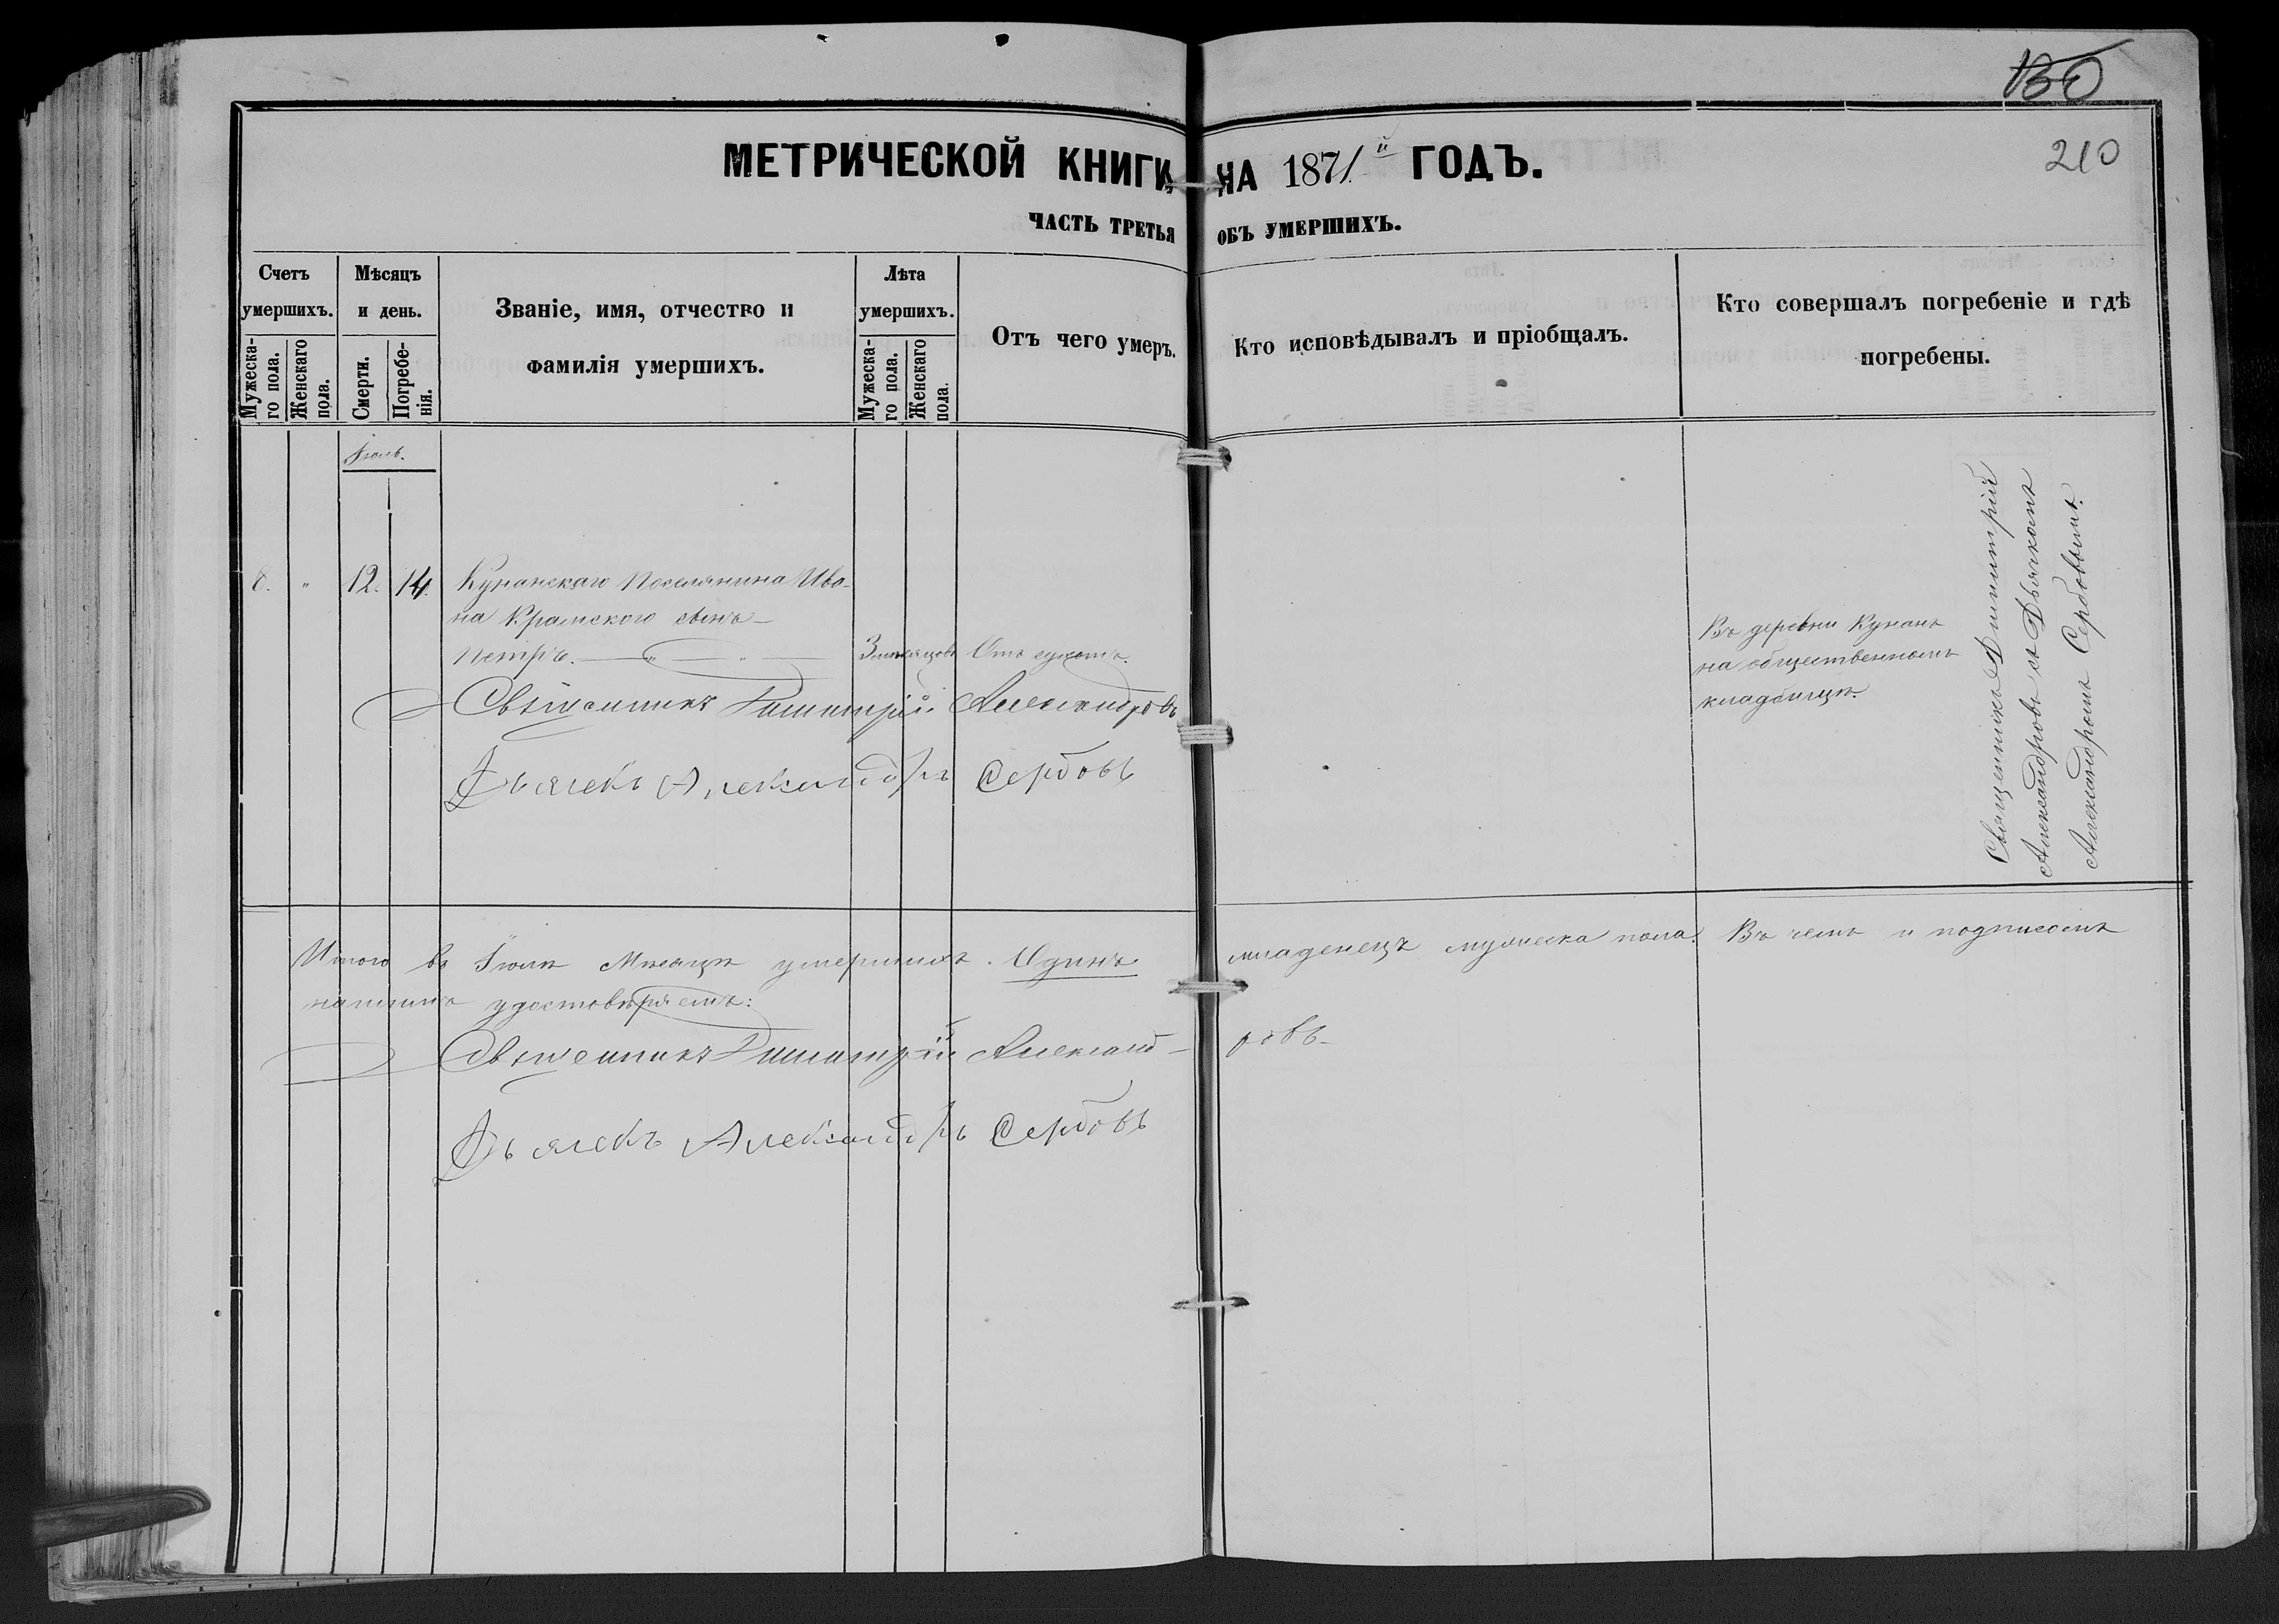 130
210
МЕТРИЧЕСКОЙ КНИГИ НА 1871й ГОДЪ.
ЧАСТЬ ТРЕТЬЯ ОБЪ УМЕРШИХЪ.
Счетъ умершихъ.
Мужескаго пола.
Женскаго пола.
Мѣсяцъ и день.
Смерти.
Погребенія.
Званіе, имя, отчество и
фамилія умершихъ.
Лѣта умершихъ.
Мужескаго пола.
Женскаго пола.
Отъ чего умеръ.
Кто исповѣдывалъ и пріобщалъ.
Кто совершалъ погребеніе и гдѣ
погребены.
Іюль.
8. " 12. 14. Поселянина Ива-
на Крамского сынъ
Петръ. 3 мѣсяцовъ Отъ сухотъ.
Въ деревни
на общественномъ
кладбищѣ.
Священникъ Димитрій
Александровъ съ Дьячкомъ
Александромъ Сербовымъ.
Священникъ Димитрій Александровъ
Дьячекъ Александръ Сербовъ
Итого въ Іюлѣ Мѣсяцѣ умершихъ. Одинъ младенецъ мужеска пола. Въ чемъ и подписомъ
нашимъ удостовѣряемъ:
Священникъ Димитрій Александ-
ровъ
Дьячекъ Александръ Сербовъ